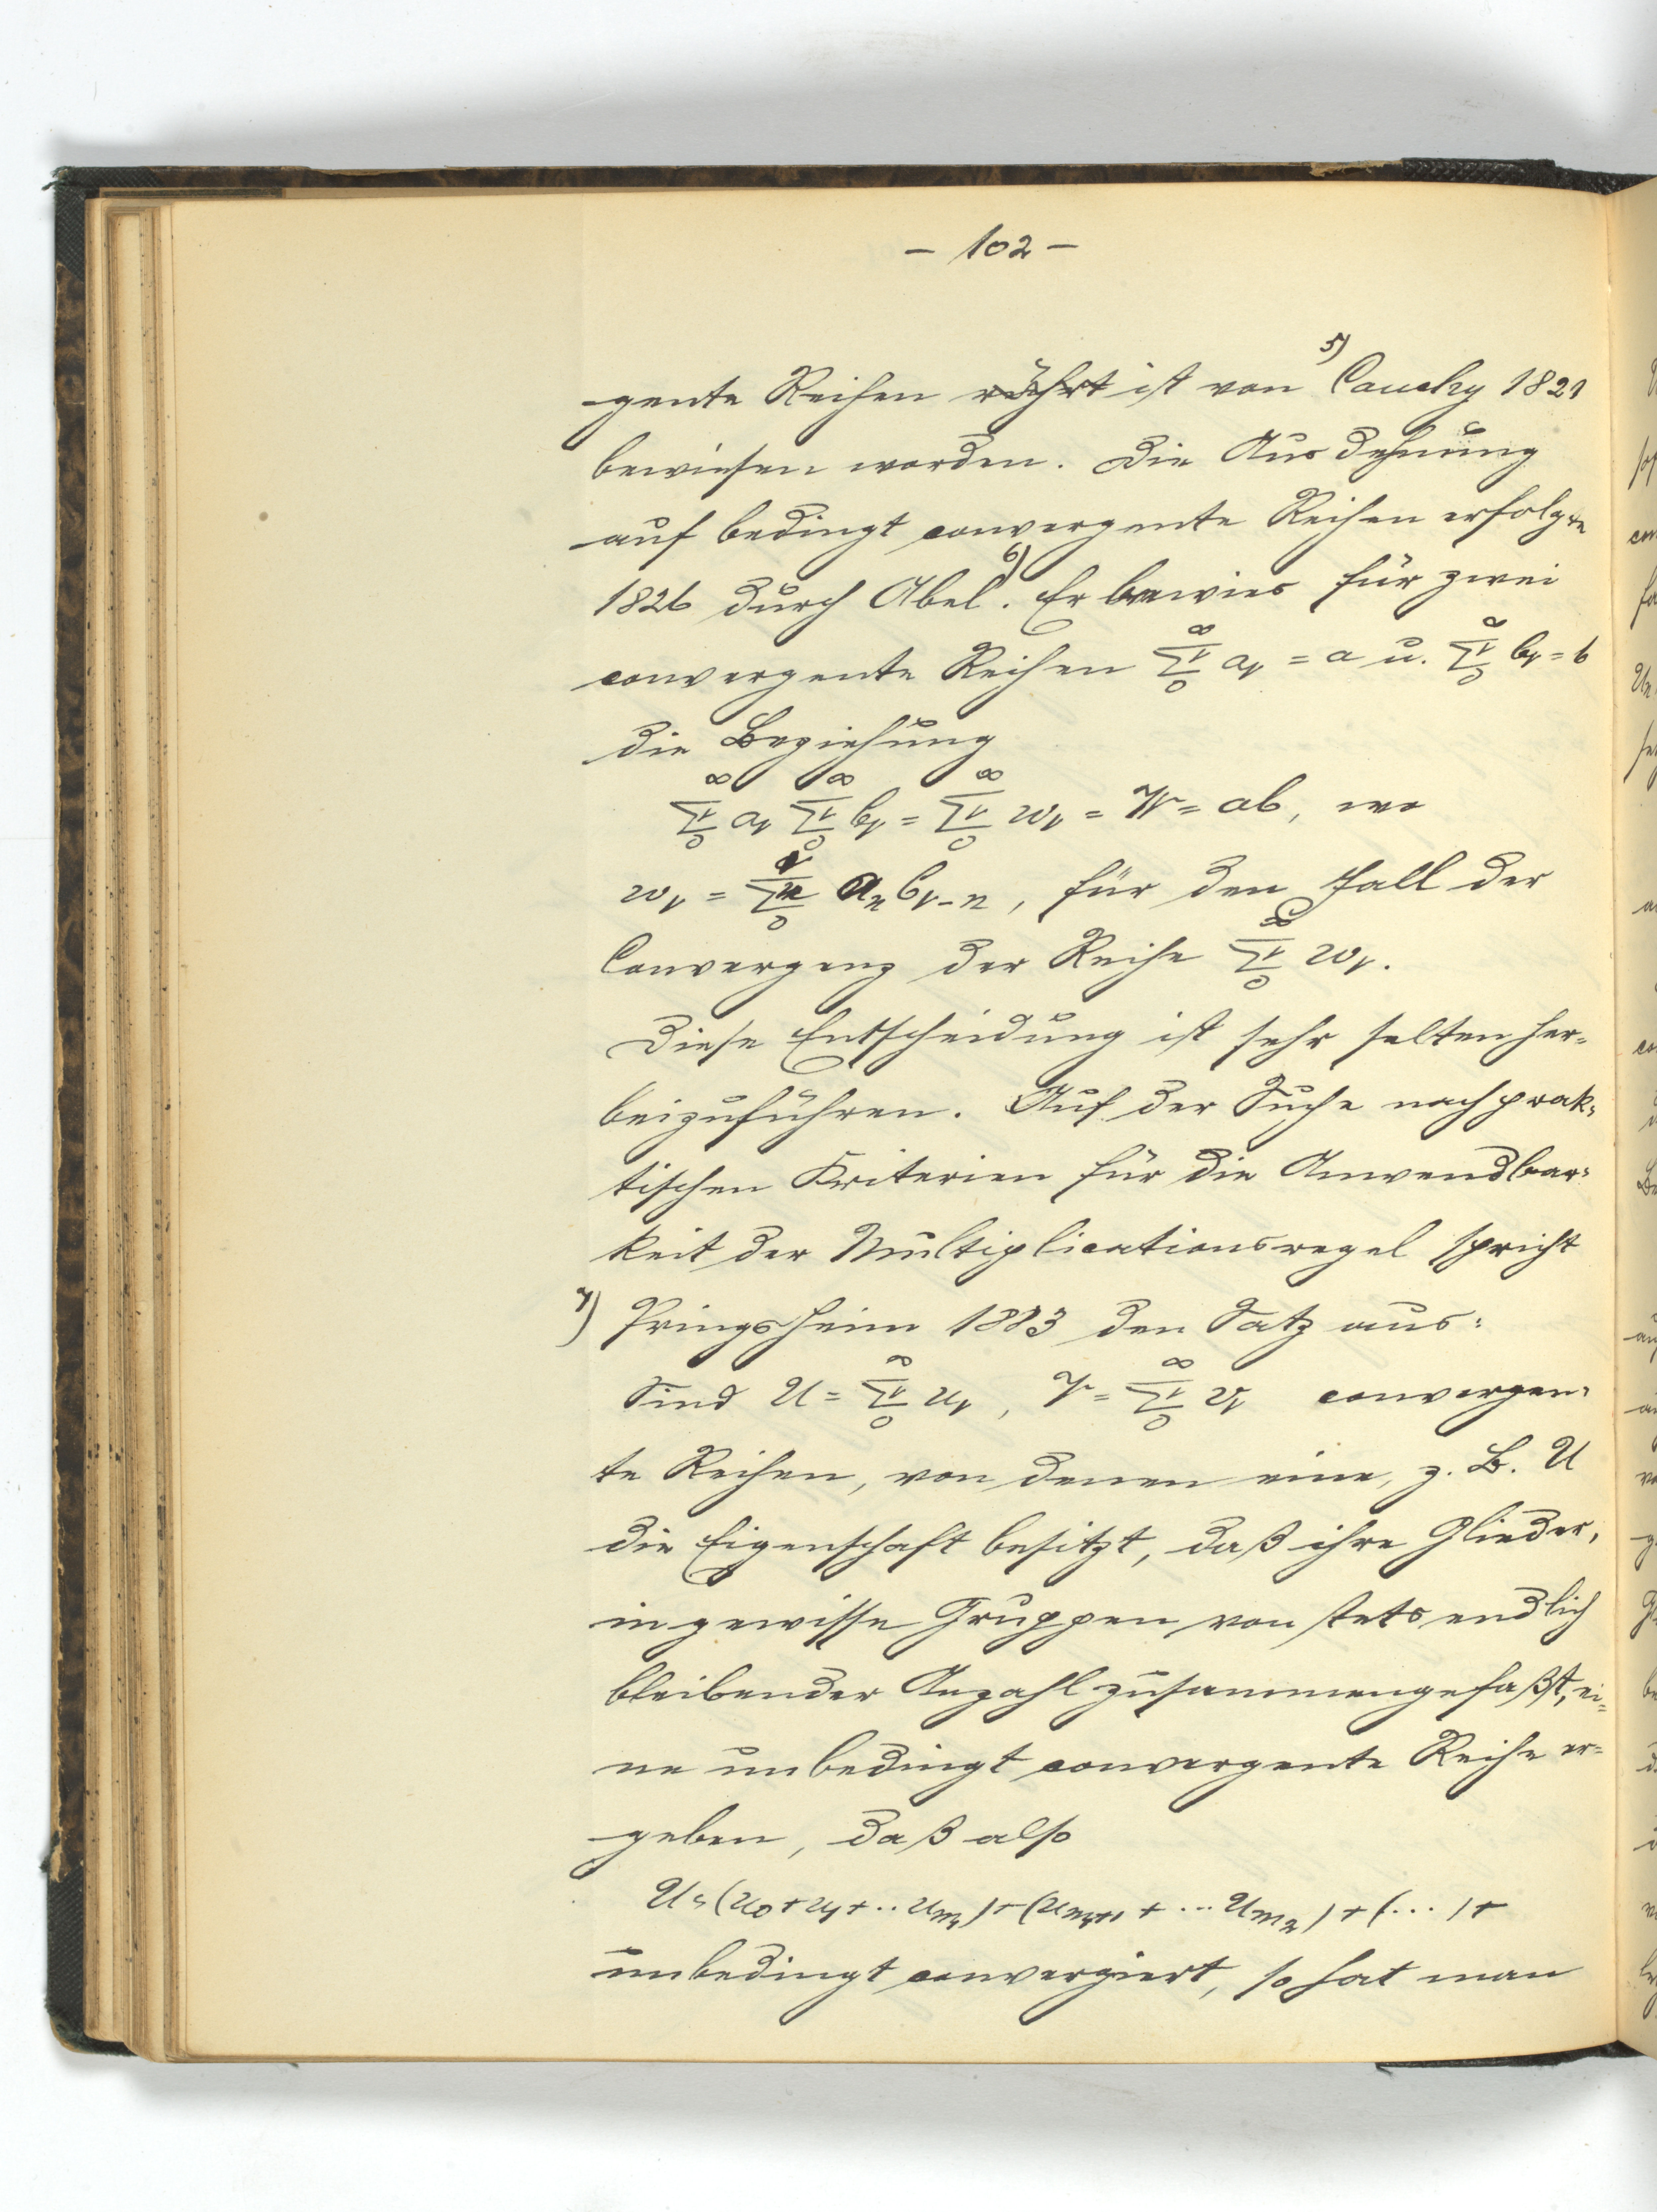 – 102 –
gente Reihen rührt ist von ⁵⁾ Cauchy 1821
bewiesen worden. Die Ausdehnung
auf bedingt convergente Reihen erfolgte
1826 durch Abel ⁶⁾. Er bewies für zwei
convergente Reihen ∞ Σν 0 aν = a u. ∞ Σν 0 bν = b
die Beziehung
∞ Σν 0 aν ∞ Σν 0 bν = ∞ Σν 0 wν = W = ab, wo
wν = ν Σn 0 an bν-n, für den Fall der
Convergenz der Reihe ∞ Σν 0 wν.
Diese Entscheidung ist sehr selten her-
beizuführen. Auf der Suche nach prak-
tischen Kriterien für die Anwendbar-
keit der Multiplicationsregel spricht
⁷⁾ Pringsheim 1883 den Satz aus:
Sind U = ∞ Σν 0 uν, V = ∞ Σν 0 vν convergen-
te Reihen, von denen eine, z. B. U
die Eigenschaft besitzt, daß ihre Glieder,
in gewisse Gruppen von stets endlich
bleibender Anzahl zusammengefaßt, ei-
ne unbedingt convergente Reihe er-
geben, daß also
U = (u0 + u1 + .. um1) + (um1+1 + ... um2) + (...) +
unbedingt convergiert, so hat man